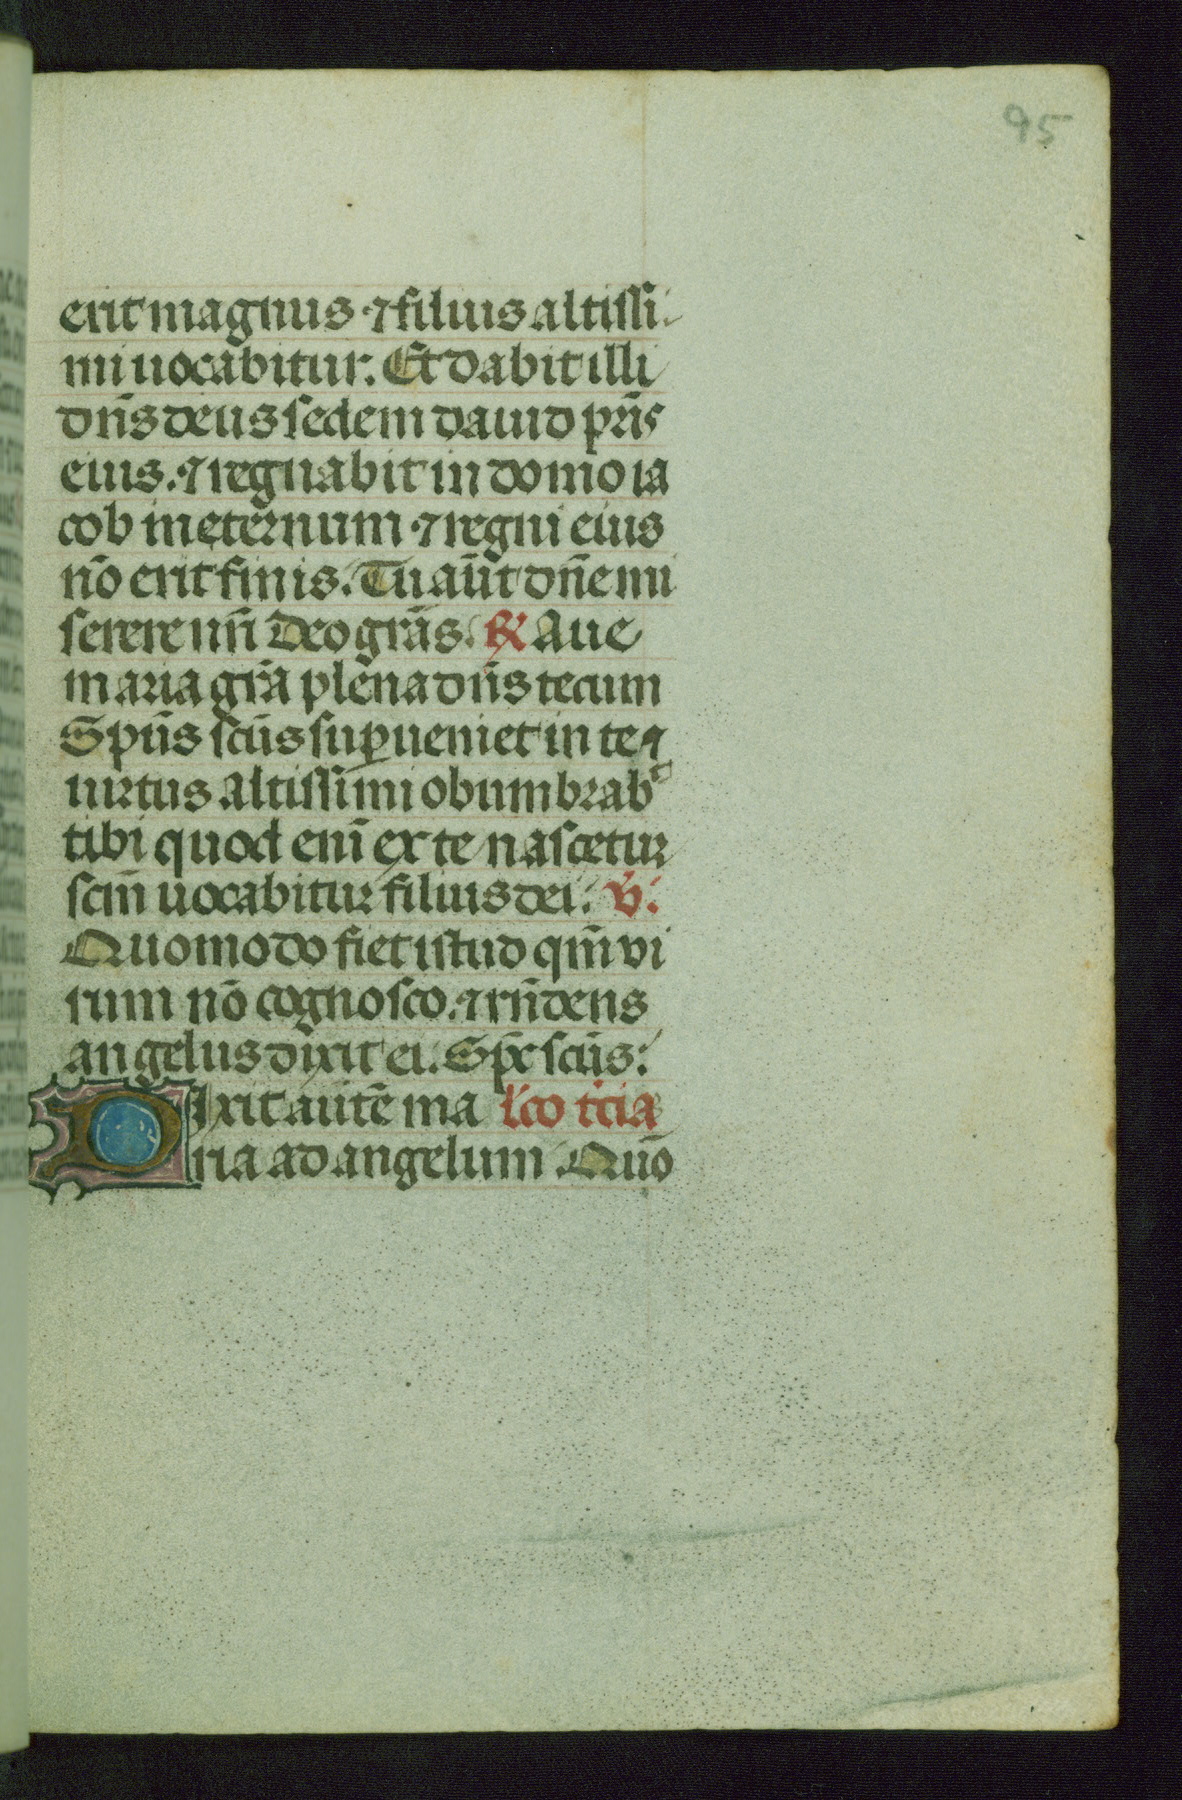 95
erit magnus ⁊ filius altissi
mi uocabitur. Et dabit illi
dn̄s deus sedem dauid pr̄is
eius. ⁊ regnabit in domo ia
cob in eternum ⁊ regni eius
nō erit finis. Tu aūt dn̄e mi
serere nr̄i Deo grās. ℟ Aue
maria grā plēna dn̄s tecum
Spūs scūs suꝑueniet in te ⁊
uirtus altissimi obumbrabᵗ
tibi quod eni̅ ex te nascetur
scm̄ uocabitur filius dei. ℣.
Quomodo fiet istud qm̄ vi
rum nō cognosco. ⁊ rn̄dens
angelus dixit ei. Sp̄c scūs.
Dixit autē ma lc̄o t̄cia
ria ad angelum Quō